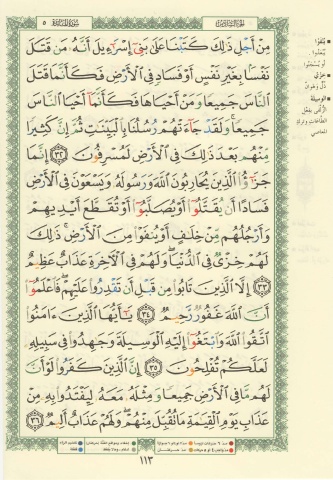 الجزء السادس
سورة المائدة ٥
مِنْ أَجْلِ ذَٰلِكَ كَتَبْنَا عَلَىٰ بَنِي إِسْرَٰٓءِيلَ أَنَّهُۥ مَن قَتَلَ
نَفْسًۢا بِغَيْرِ نَفْسٍ أَوْ فَسَادٍ فِي ٱلْأَرْضِ فَكَأَنَّمَا قَتَلَ
ٱلنَّاسَ جَمِيعًا وَمَنْ أَحْيَاهَا فَكَأَنَّمَآ أَحْيَا ٱلنَّاسَ
جَمِيعًا ۚ وَلَقَدْ جَآءَتْهُمْ رُسُلُنَا بِٱلْبَيِّنَٰتِ ثُمَّ إِنَّ كَثِيرًا
مِّنْهُم بَعْدَ ذَٰلِكَ فِي ٱلْأَرْضِ لَمُسْرِفُونَ ٣٢ إِنَّمَا
جَزَٰٓؤُا۟ ٱلَّذِينَ يُحَارِبُونَ ٱللَّهَ وَرَسُولَهُۥ وَيَسْعَوْنَ فِي ٱلْأَرْضِ
فَسَادًا أَن يُقَتَّلُوٓا۟ أَوْ يُصَلَّبُوٓا۟ أَوْ تُقَطَّعَ أَيْدِيهِمْ
وَأَرْجُلُهُم مِّنْ خِلَٰفٍ أَوْ يُنفَوْا۟ مِنَ ٱلْأَرْضِ ۚ ذَٰلِكَ
لَهُمْ خِزْيٌ فِي ٱلدُّنْيَا ۖ وَلَهُمْ فِي ٱلْءَاخِرَةِ عَذَابٌ عَظِيمٌ
٣٣ إِلَّا ٱلَّذِينَ تَابُوا۟ مِن قَبْلِ أَن تَقْدِرُوا۟ عَلَيْهِمْ ۖ فَٱعْلَمُوٓا۟
أَنَّ ٱللَّهَ غَفُورٌ رَّحِيمٌ ٣٤ يَٰٓأَيُّهَا ٱلَّذِينَ ءَامَنُوا۟
ٱتَّقُوا۟ ٱللَّهَ وَٱبْتَغُوٓا۟ إِلَيْهِ ٱلْوَسِيلَةَ وَجَٰهِدُوا۟ فِي سَبِيلِهِۦ
لَعَلَّكُمْ تُفْلِحُونَ ٣٥ إِنَّ ٱلَّذِينَ كَفَرُوا۟ لَوْ أَنَّ
لَهُم مَّا فِي ٱلْأَرْضِ جَمِيعًا وَمِثْلَهُۥ مَعَهُۥ لِيَفْتَدُوا۟ بِهِۦ مِنْ
عَذَابِ يَوْمِ ٱلْقِيَٰمَةِ مَا تُقُبِّلَ مِنْهُمْ ۖ وَلَهُمْ عَذَابٌ أَلِيمٌ ٣٦
يُنفَوْا
يُبْعَدُوا
أو يُسجنوا
خِزْيٌ
ذُلٌّ وهوانٌ
الوسيلة
الزلفى بفعل
الطاعات وترك
المعاصي
١١٣